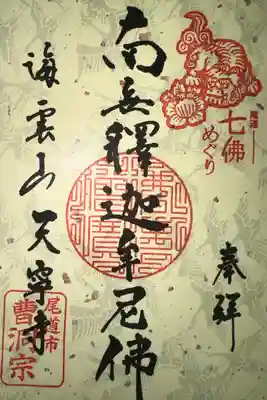 尾道
七佛
めぐり
奉拜
南無釋迦牟尼佛
海雲山 天寧寺
尾道市
曹洞宗